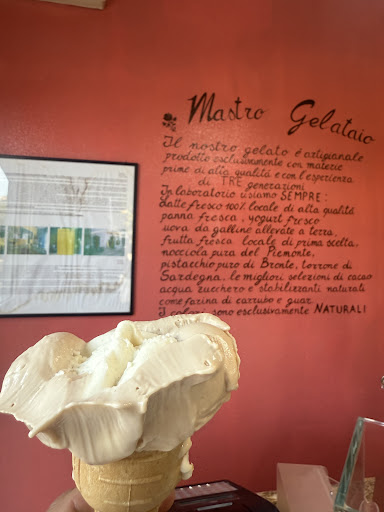 Mastro Gelataio
Il nostro gelato è artigianale
prodotto esclusivamente con materie
prime di alta qualità e con l'esperienza
di TRE generazioni
In laboratorio usiamo SEMPRE:
latte fresco 100% locale di alta qualità
panna fresca, yogurt fresco
uova da galline allevate a terra,
frutta fresca locale di prima scelta,
nocciola pura del Piemonte,
pistacchio puro di Bronte, torrone di
Sardegna, le migliori selezioni di cacao
acqua zucchero e stabilizzanti naturali
come farina di carrube e guar
I colori sono esclusivamente NATURALI